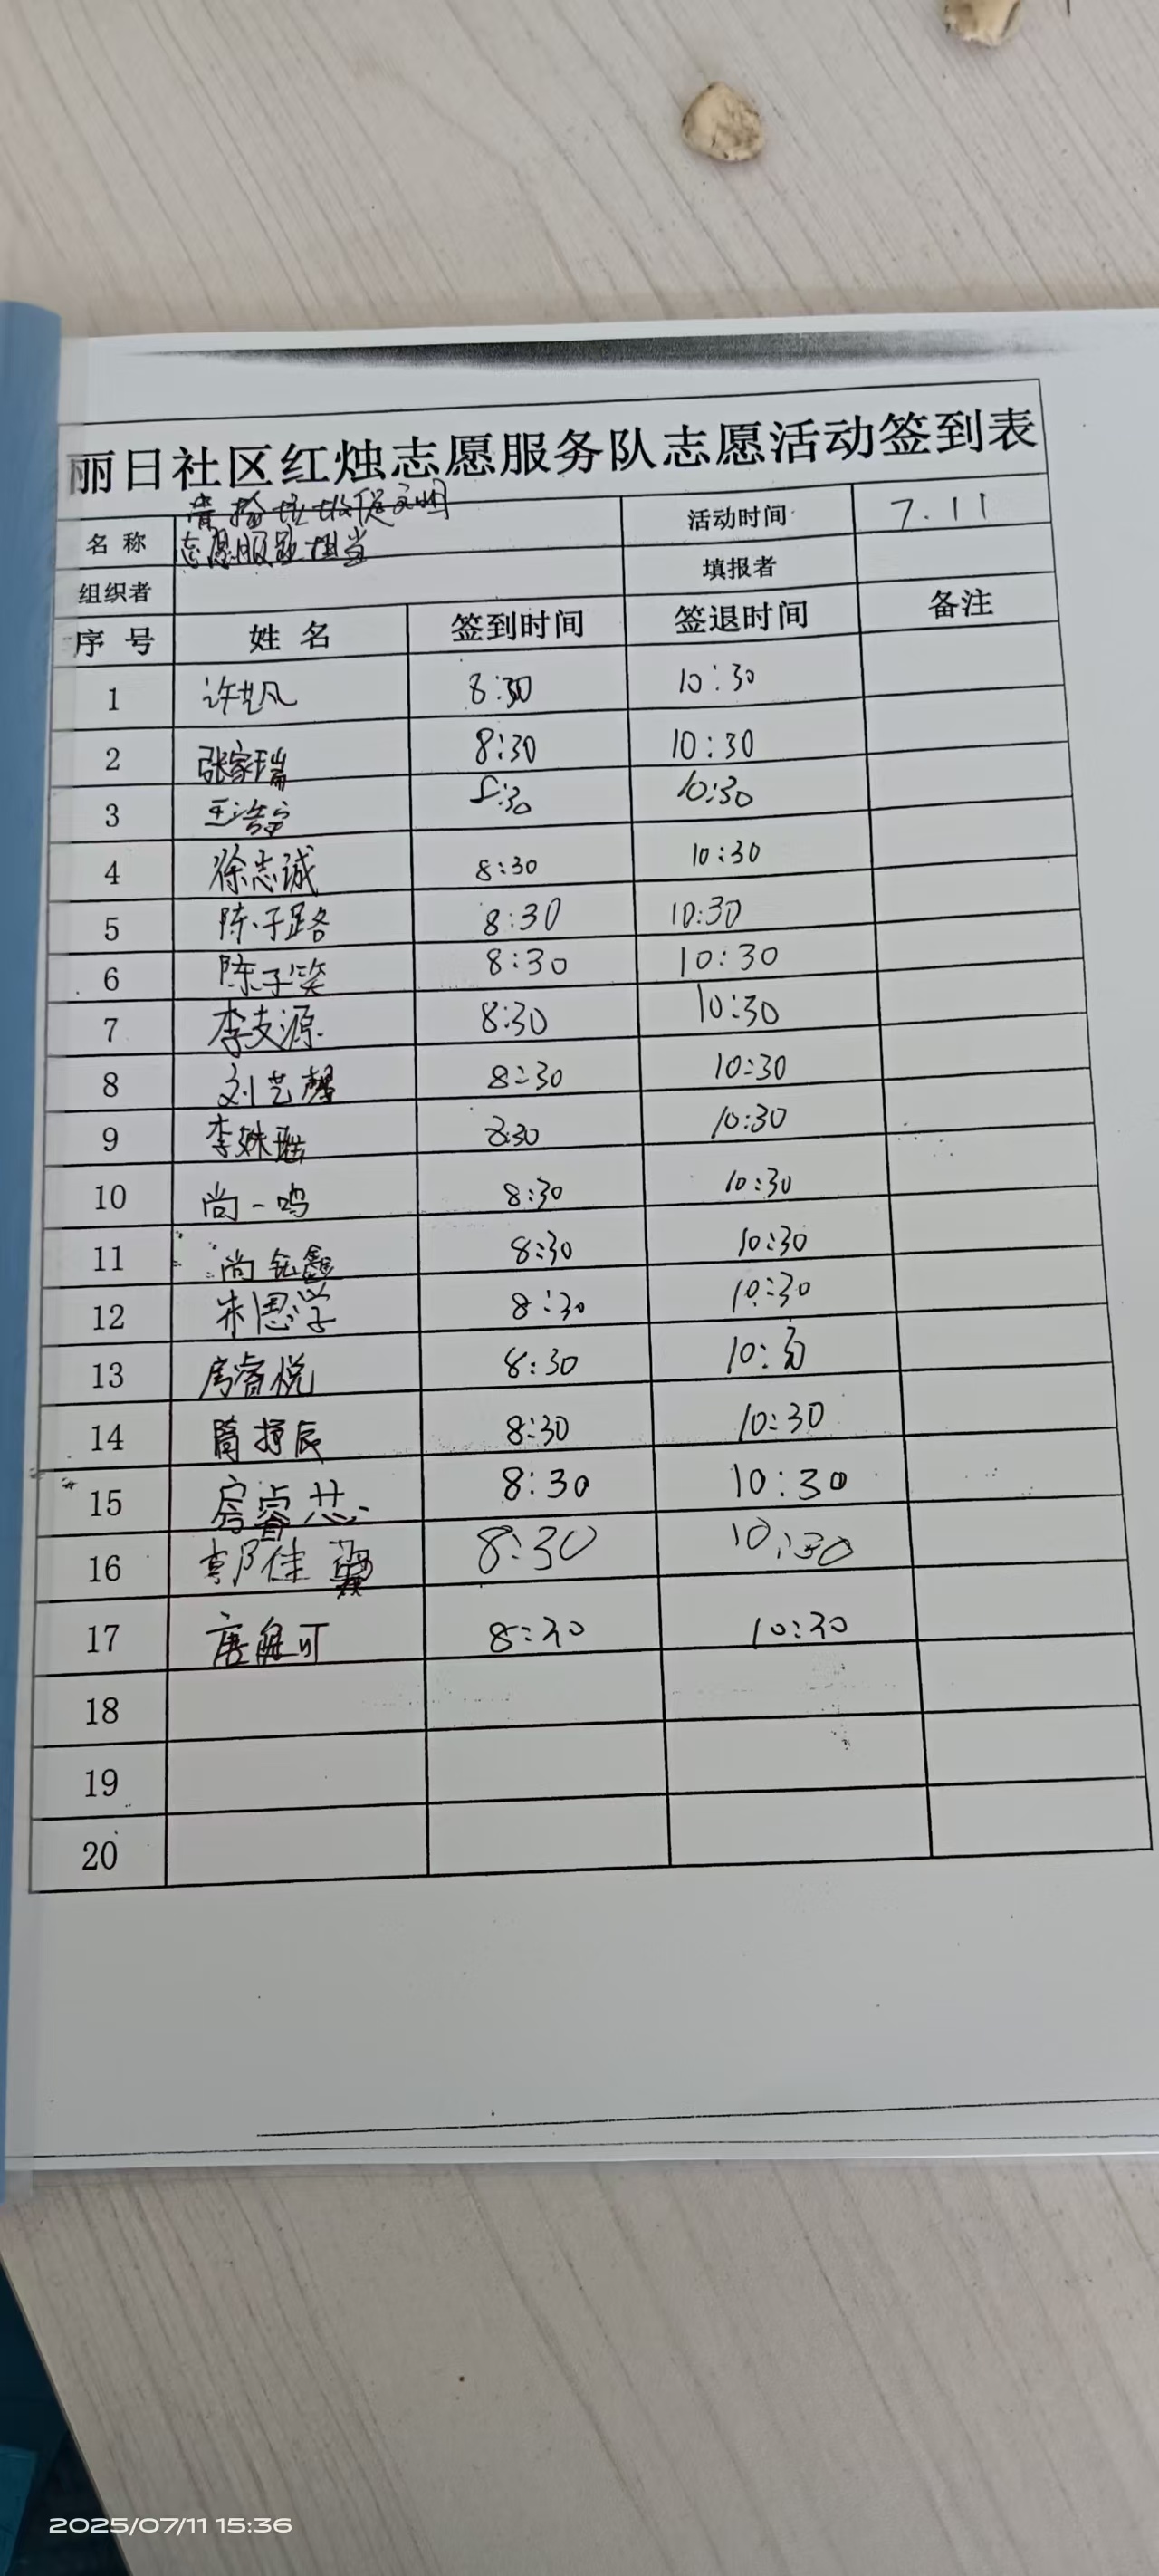 丽日社区红烛志愿服务队志愿活动签到表
名 称 清捡垃圾促文明 活动时间 7.11
志愿服务担当
组织者 填报者
序 号 姓 名 签到时间 签退时间 备注
1 许艺凡 8:30 10:30
2 张家瑞 8:30 10:30
3 王浩宇 8:30 10:30
4 徐志诚 8:30 10:30
5 陈子路 8:30 10:30
6 陈子笑 8:30 10:30
7 李支源 8:30 10:30
8 刘艺馨 8:30 10:30
9 李姝瑶 8:30 10:30
10 尚一鸣 8:30 10:30
11 尚钰鑫 8:30 10:30
12 朱恩学 8:30 10:30
13 房睿悦 8:30 10:30
14 辰 8:30 10:30
15 房睿芯 8:30 10:30
16 郭佳 8:30 10:30
17 唐 可 8:30 10:30
18
19
20
2025/07/11 15:36